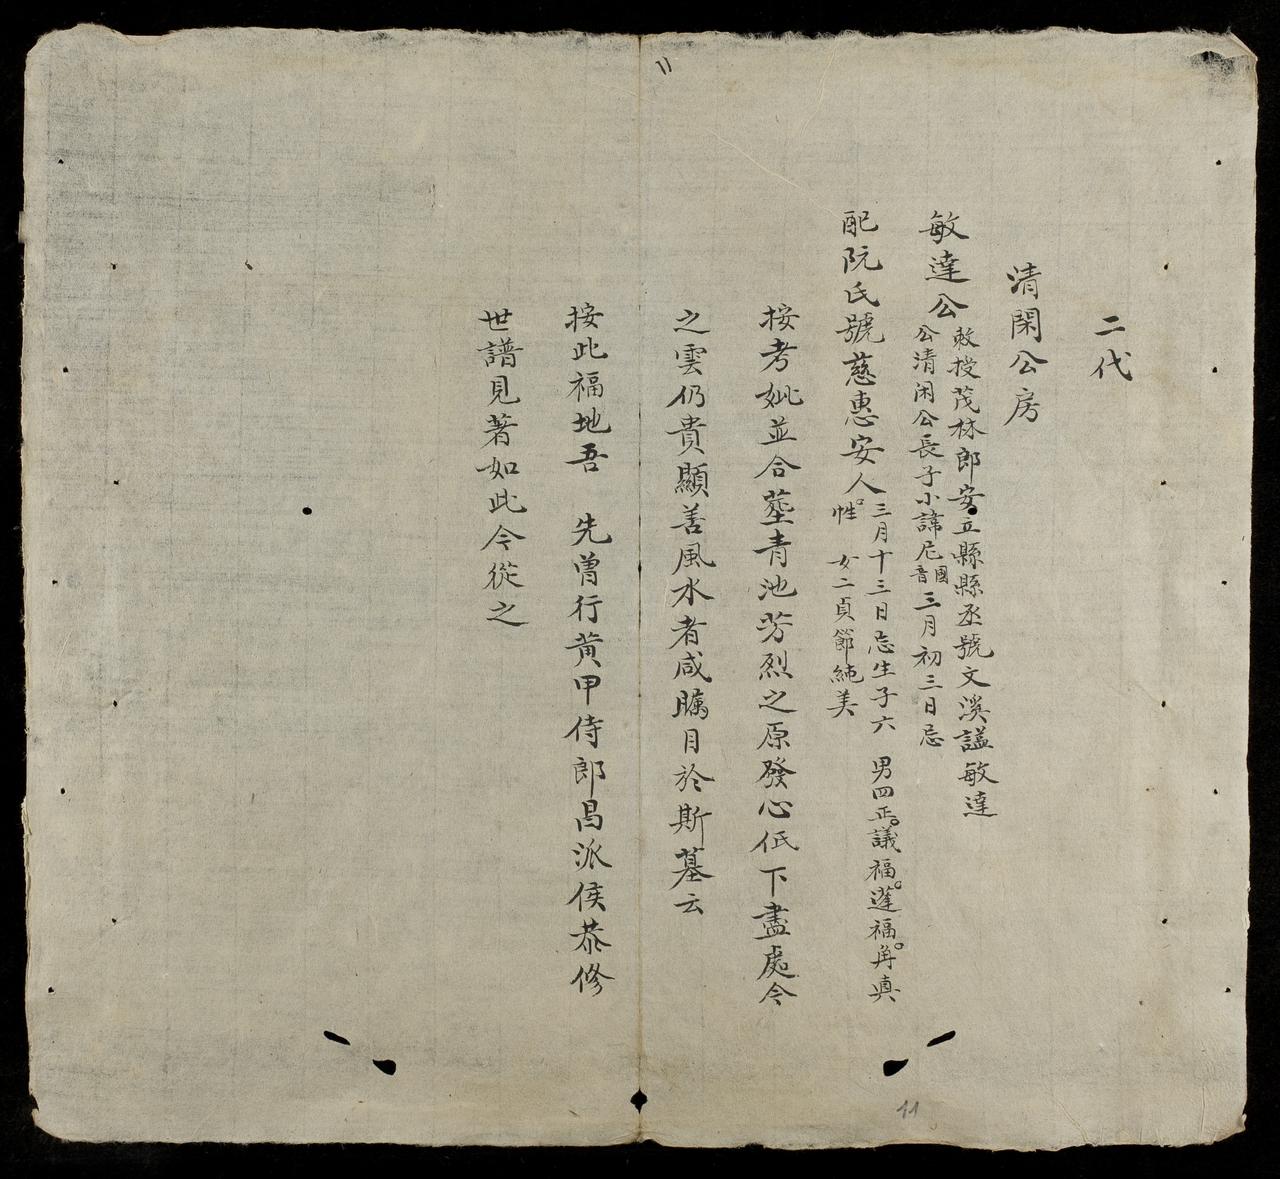 11
二代
清閑公房
敏達公
敕授茂林郎安立縣縣丞號文溪謚敏達
公清闲公長子小諱尼國音三月初三日忌
配阮氏號慈惠安人
三月十三日忌生子六　男四正議福蓬福角真
性　女二貞節純美
按考妣並合塟青池芳烈之原發心低下盡處今
之雲仍貴顯善風水者咸矚目於斯墓云
按此福地吾　先曾行黄甲侍郎昌派侯恭修
世譜見著如此今從之
11